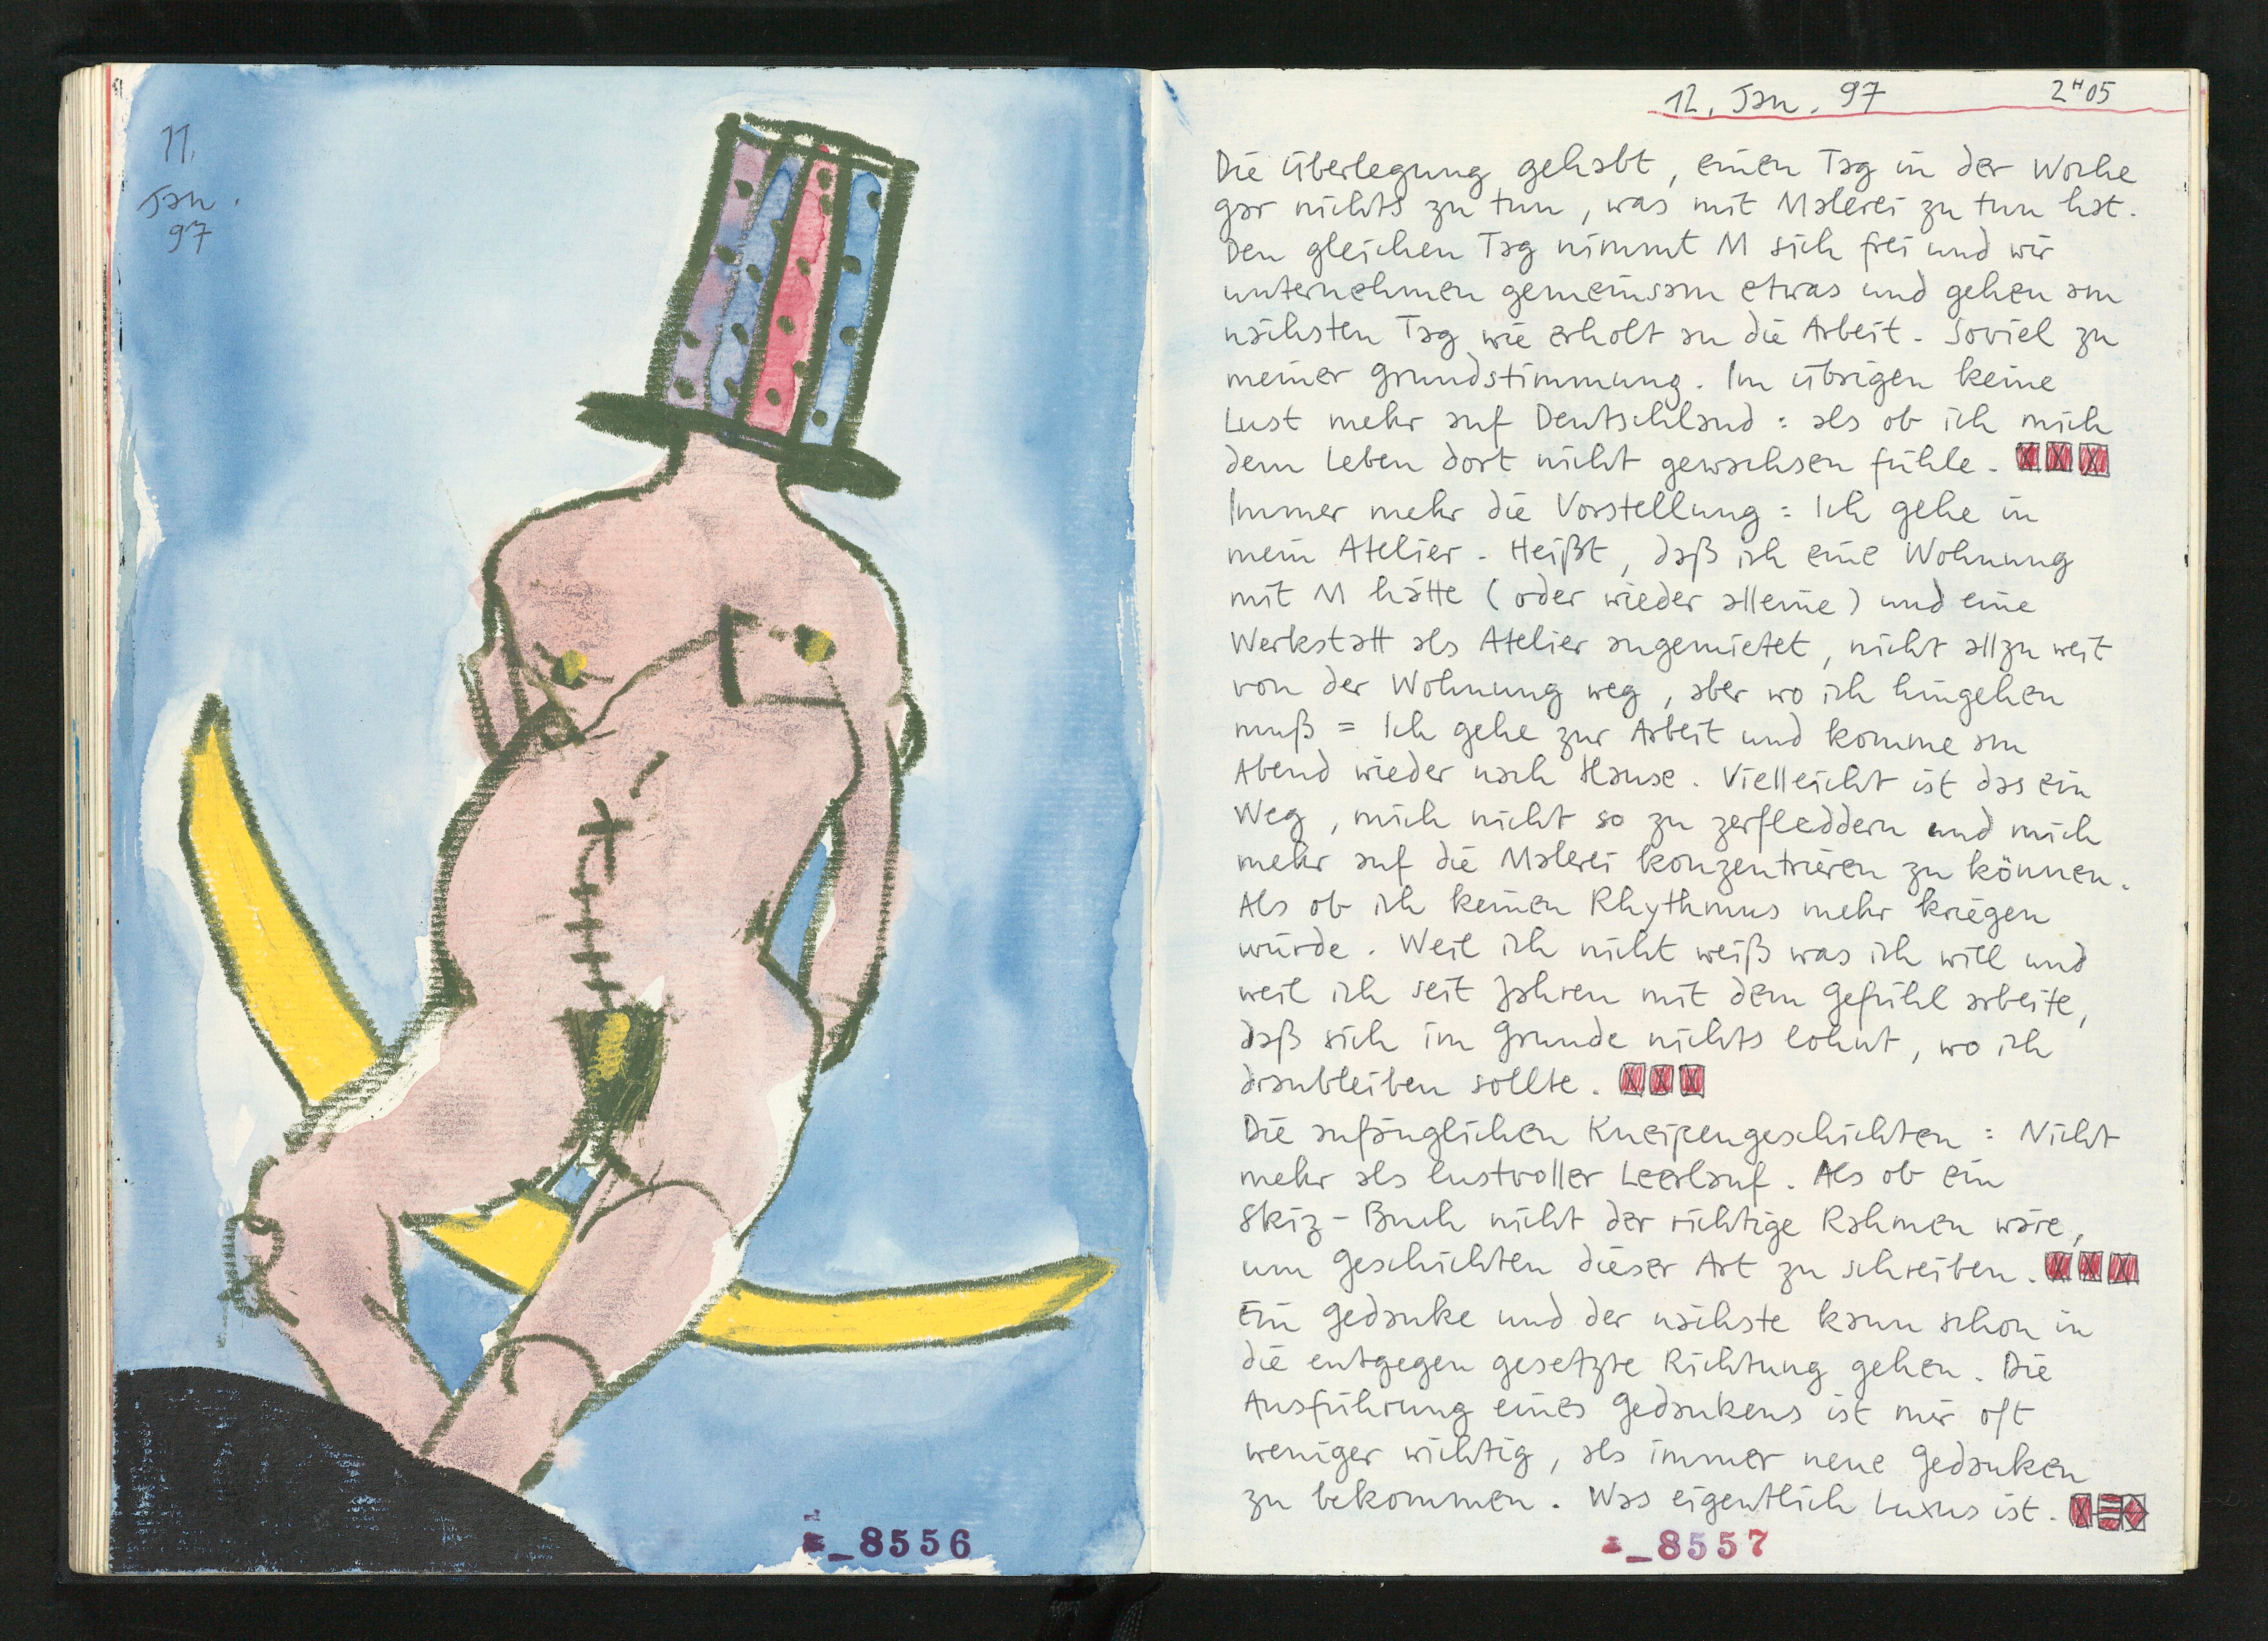 11.
Jan.
97
8556
12. Jan. 97 2H05
Die Überlegung gehabt, einen Tag in der Woche
gar nichts zu tun, was mit Malerei zu tun hat.
Den gleichen Tag nimmt M sich frei und wir
unternehmen gemeinsam etwas und gehen am
nächsten Tag wie erholt an die Arbeit. Soviel zu
meiner Grundstimmung. Im übrigen keine
Lust mehr auf Deutschland: als ob ich mich
dem Leben dort nicht gewachsen fühle.
Immer mehr die Vorstellung: Ich gehe in
mein Atelier. Heißt, daß ich eine Wohnung
mit M hätte (oder wieder alleine) und eine
Werkstatt als Atelier angemietet, nicht allzu weit
von der Wohnung weg, aber wo ich hingehen
muß = Ich gehe zur Arbeit und komme am
Abend wieder nach Hause. Vielleicht ist das ein
Weg, mich nicht so zu zerfleddern und mich
mehr auf die Malerei konzentrieren zu können.
Als ob ich keinen Rhythmus mehr kriegen
würde. Weil ich nicht weiß was ich will und
weil ich seit Jahren mit dem Gefühl arbeite,
daß sich im Grunde nichts lohnt, wo ich
dranbleiben sollte.
Die anfänglichen Kneipengeschichten: Nicht
mehr als lustvoller Leerlauf. Als ob ein
Skiz-Buch nicht der richtige Rahmen wäre,
um Geschichten dieser Art zu schreiben.
Ein Gedanke und der nächste kann schon in
die entgegen gesetzte Richtung gehen. Die
Ausführung eines Gedankens ist mir oft
weniger wichtig, als immer neue Gedanken
zu bekommen. Was eigentlich Luxus ist.
8557